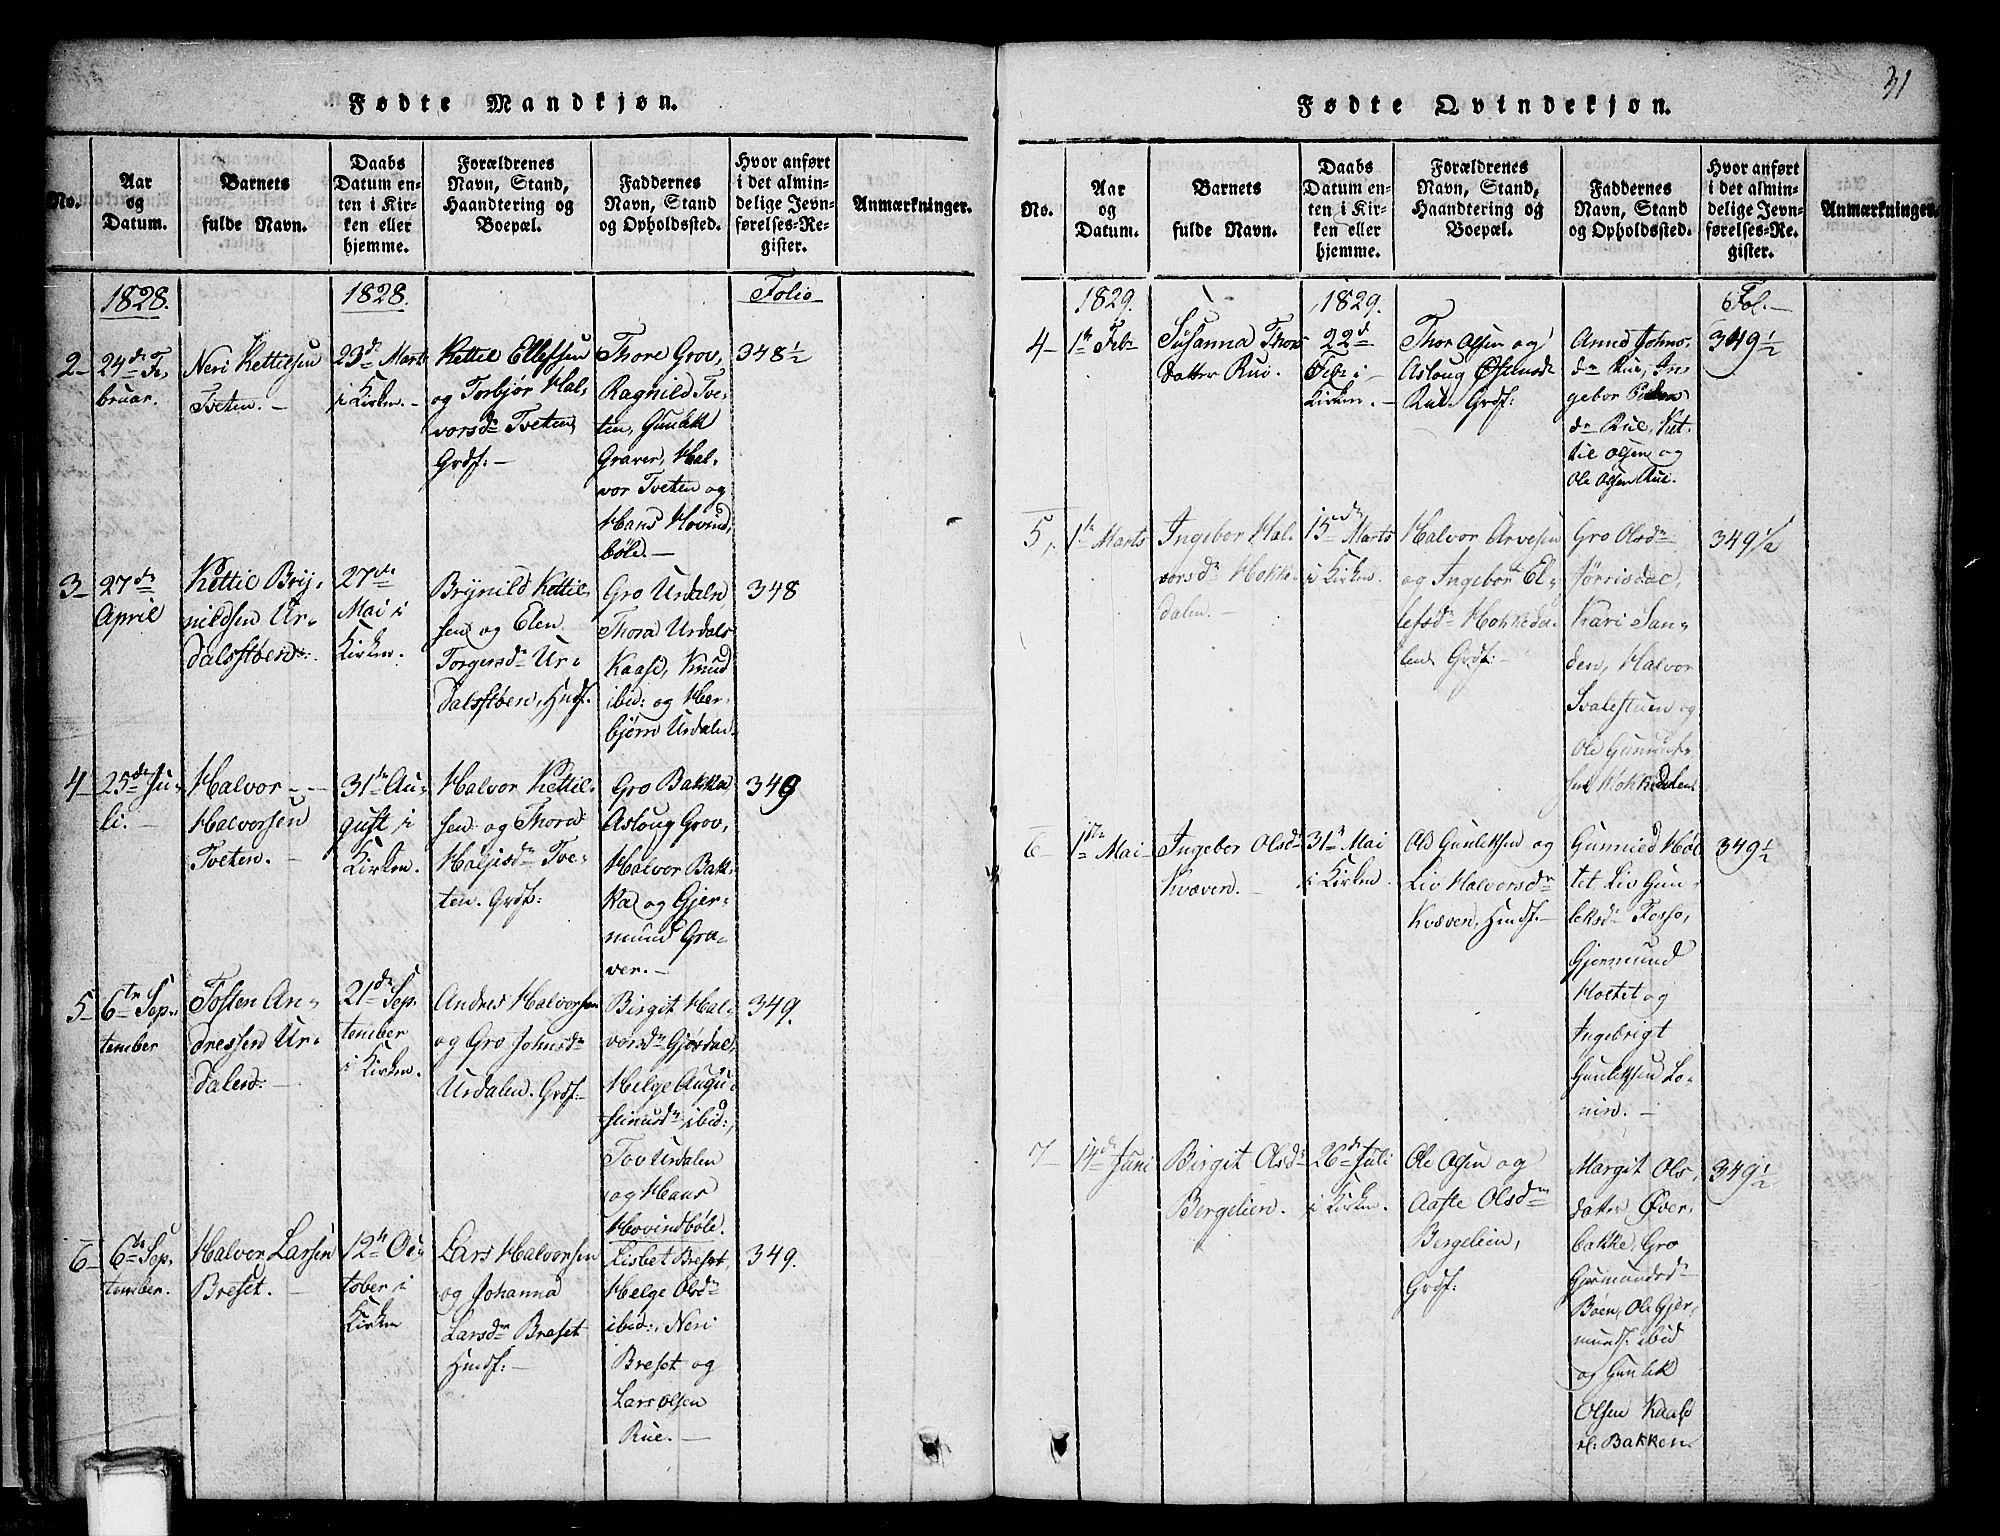 31
Fødte Mandkjøn.
No.
Aar
og
Datum.
Barnets
fulde Navn.
Daabs
Datum en-
ten i Kir-
ken eller
hjemme.
Forældrenes
Navn, Stand,
Haandtering og
Boepæl.
Faddernes
Navn, Stand
og Opholdssted.
Hvor anført
i det almin-
delige Jevn-
førelses-Re-
gister.
Anmærkninger.
1828.
1828.
Folio
2
24de Fe-
bruar.
Neri Kettelsen
Tveten.
23de Marts
i Kirken.
Kettil Ellefsen
og Torbjør Hal-
vorsdr Tveten
Grdf:
Thore Grov,
Ragnild Tve-
ten, Gunlek
Graver, Hal-
vor Tveten og
Hans Hovind
böle.
348½
3
27de
April
Kettil Bry-
nildsen Ur-
dalsstøen.
27de
Mai i
Kirken.
Brynild Kettil-
sen og Elen
Torgersdr Ur-
dalsstøen, Hmdf.
Gro Urdalen,
Thora Urdals
Kaase, Knud
ibid: og Her-
bjørn Urdalen.
348
4
25de Ju-
li.
Halvor
Halvorsen
Tveten.
31te Au-
gust i
Kirken.
Halvor Kettil-
sen og Thora
Haljesdr Tve-
ten. Grdf:
Gro Bakka
Aslaug Grov,
Halvor Bak-
ka og Gjer-
mund Gra-
ver.
349
5
6te Sep-
tember
Tosten An-
dressen Ur-
dalen.
21de Sep-
tember
i Kirken.
Andres Halvorsen
og Gro Johnsdr
Urdalen. Grdf:
Birgit Hal-
vorsdr Gjosdal,
Helge Augu-
stinusdr ibid:,
Tov Urdalen
og Hans
Hovindböle.
349.
6
6te Sep-
tember.
Halvor Larsen
Breset.
12te Oc-
tober i
Kirken
Lars Halvorsen
og Johanna
Larsdr Breset
Hmdf:
Lisbet Breset,
Helge Olsdr
ibid:, Neri
Breset og
Lars Olsen
Rue.
349.
Fødte Qvindekjøn.
No.
Aar
og
Datum.
Barnets
fulde Navn.
Daabs
Datum en-
ten i Kir-
ken eller
hjemme.
Forældrenes
Navn, Stand,
Haandtering og
Boepæl.
Faddernes
Navn, Stand
og Opholdssted.
Hvor anført
i det almin-
delige Jevn-
førelses-Re-
gister.
Anmærkninger.
1829.
1829.
Fol.
4
1te Febr
Susanna Thors
datter Rue.
22de
Febr i
Kirken.
Thor Olsen og
Aslaug Østensdr
Rue. Grdf:
Anne Johns-
dr Rue, In-
gebor Peders
dr Rue, Ket-
til Olsen og
Ole Olsen Rue.
349½
5,
1te Marts
Ingebor Hal-
vorsdr Hokke-
dalen.
15de Marts
i Kirken.
Halvor Arvesen
og Ingebor El-
lefsdr Hokkeda-
len, Grdf:
Gro Olsdr
Jørrisdal,
Kari San-
den, Halvor
Svalestuen og
Ole
Hokkedalen
349½
6
1te Mai
Ingebor Olsdr
Kvæven.
31te Mai
i Kirken.
Ole Gunleksen og
Liv Halvorsdr
Kvæven, Hmdf.
Gunnild Hol-
tet, Liv Gun-
leksdr
Gjermund
Holtet og
Ingebrigt
Gunleksen Lo-
nin.
349½
7
14de Juni
Birgit Olsdr
Bergelien.
26de Juli
i Kirken.
Ole Olsen og
Aaste Olsdr
Bergelien,
Grdf:
Margit Ols-
datter Øver-
bakke, Gro
Gjermundsdr
Bøen, Ole Gjer-
mundf. ibid
og Gunlek
Olsen Kaase
Bakken
349½